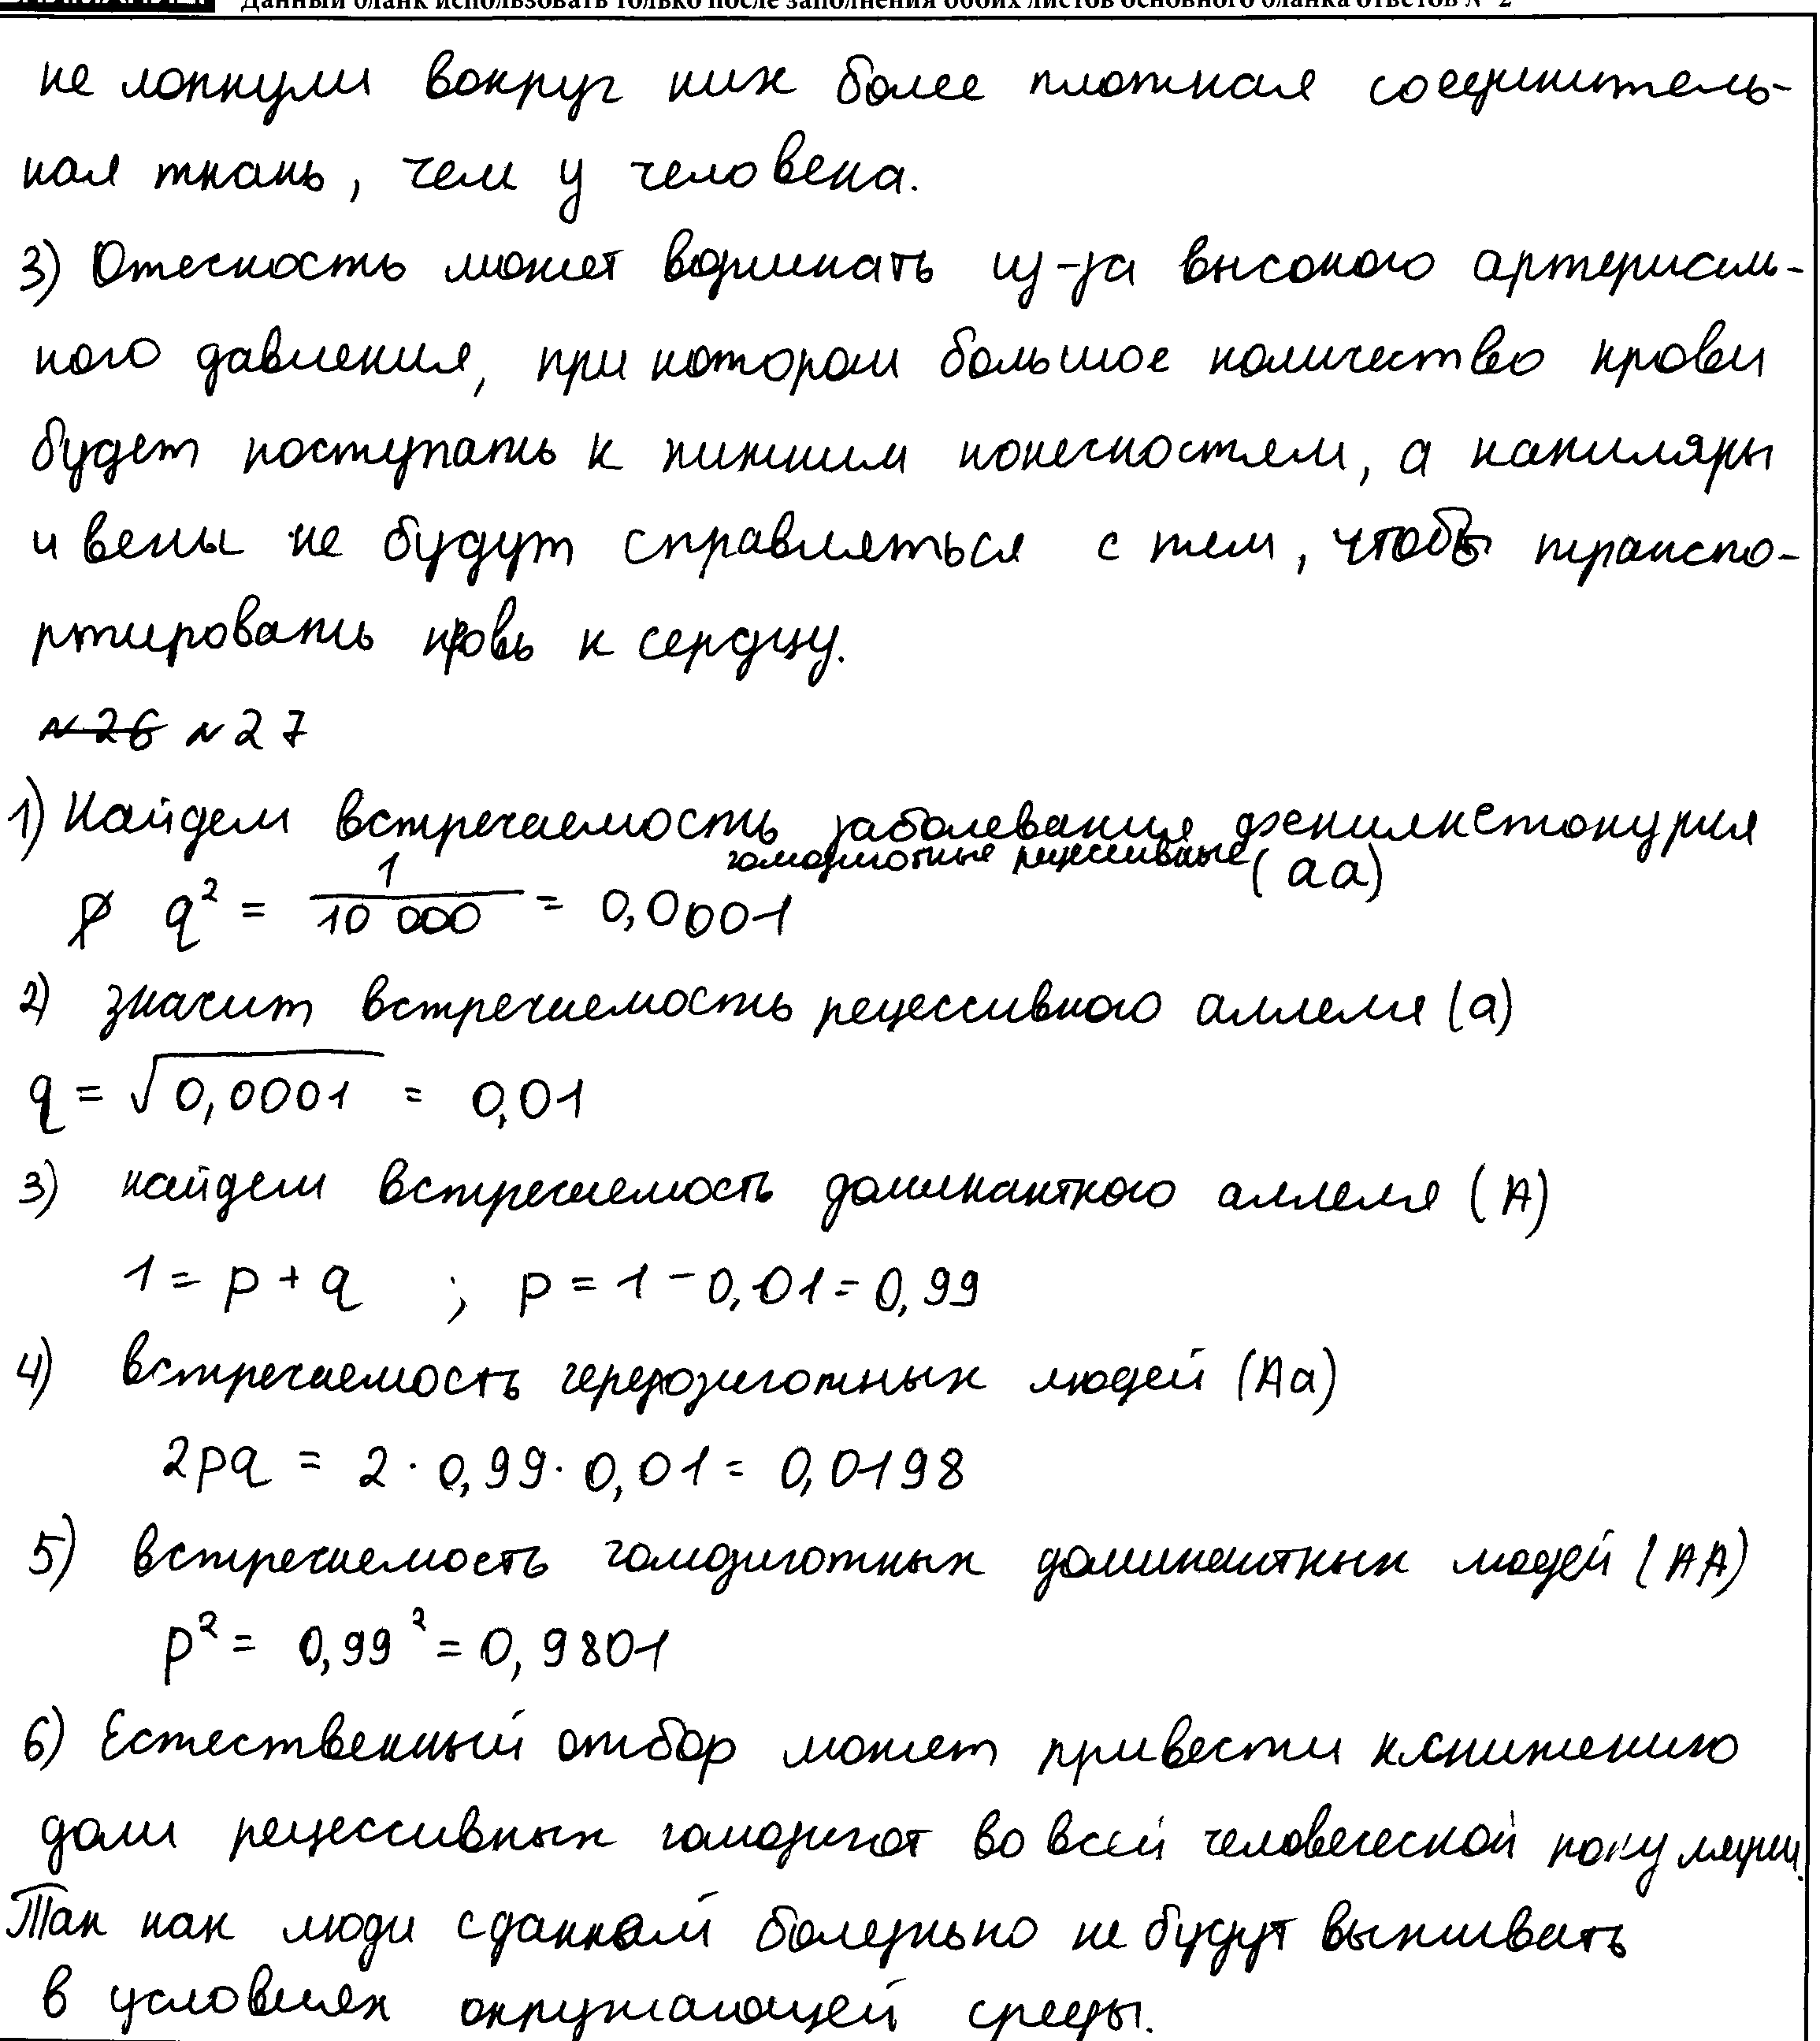 Данный бланк использовать только после заполнения обоих листов основного бланка ответов № 2
не лопнули вокруг них более плотная соединитель-
ная ткань, чем у человека.
3) Отечность может возникать из-за высокого артериаль-
ного давления, при котором большое количество крови
будет поступать к нижним конечностям, а капиляры
и вены не будут справляться с тем, чтобы транспо-
ртировать кровь к сердцу.
№26 №27
1) Найдем встречаемость заболевания фенилкетонурия
гомозиготные рецессивные (аа)
p q² = 1/10 000 = 0,0001
2) значит встречаемость рецессивного аллеля (а)
q = √0,0001 = 0,01
3) найдем встречаемость доминантного аллеля (А)
1 = p + q ; p = 1 - 0,01 = 0,99
4) встречаемость гетерозиготных людей (Аа)
2pq = 2 · 0,99 · 0,01 = 0,0198
5) встречаемость гомозиготных доминантных людей (АА)
p² = 0,99² = 0,9801
6) Естественный отбор может привести к снижению
доли рецессивных гомозигот во всей человеческой популяции.
Так как люди с данной болезнью не будут выживать
в условиях окружающей среды.